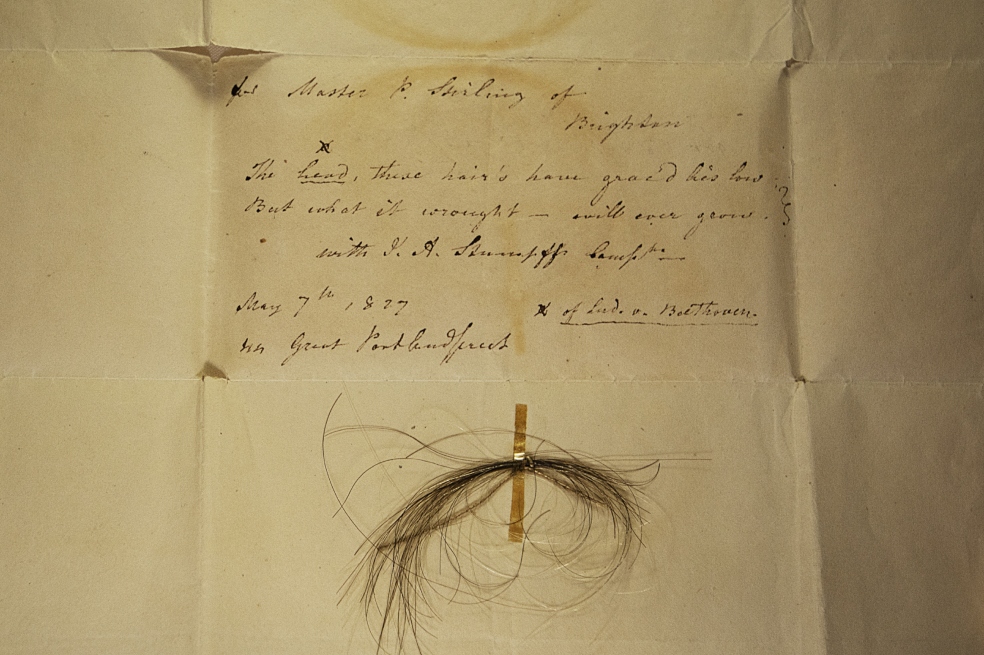 for Master P. Stirling of
Brighton
x
The head, these hair's have grac'd lies low
But what it wrought — will ever grow.
with J. A. Stumpff Compts
May 7th 1827
x of Lud. v. Beethoven.
Great Portland street